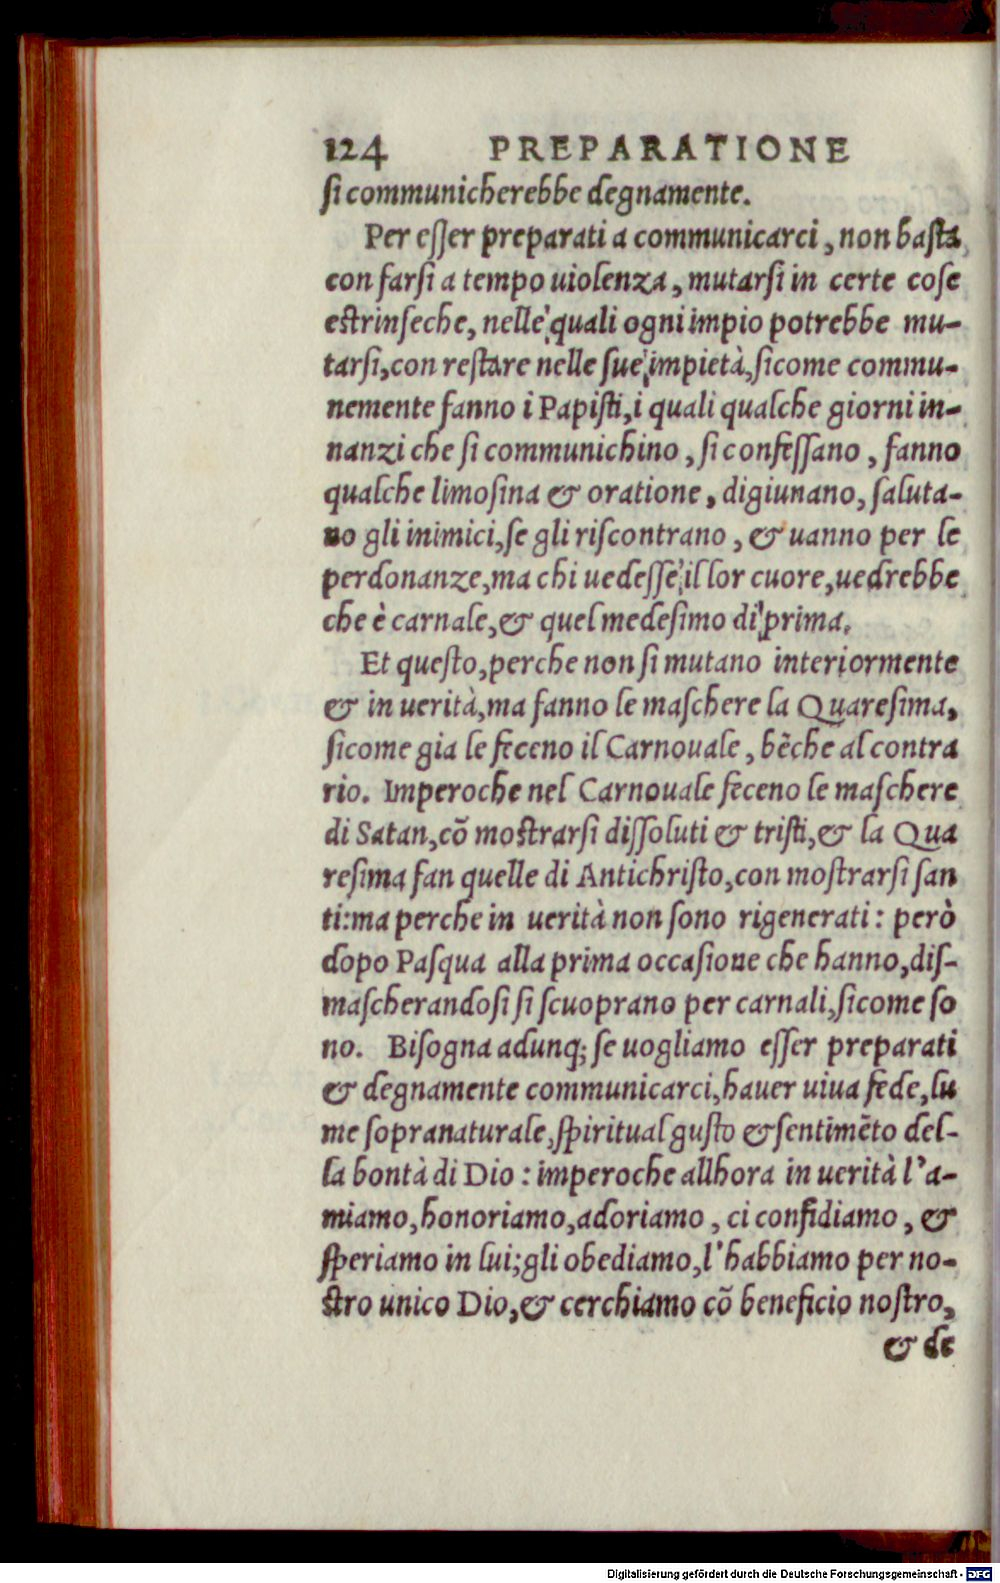 124 PREPARATIONE
si communicherebbe degnamente.
Per esser preparati a communicarci, non basta
con farsi a tempo uiolenza, mutarsi in certe cose
estrinseche, nelle quali ogni impio potrebbe mu-
tarsi, con restare nelle sue impietà, sicome commu-
nemente fanno i Papisti, i quali qualche giorni in-
nanzi che si communichino, si confessano, fanno
qualche limosina & oratione, digiunano, saluta-
no gli inimici, se gli riscontrano, & uanno per le
perdonanze, ma chi uedesse il lor cuore, uedrebbe
che è carnale, & quel medesimo di prima.
Et questo, perche non si mutano interiormente
& in uerità, ma fanno le maschere la Quaresima,
sicome gia le feceno il Carnouale, bẽche al contra
rio. Imperoche nel Carnouale feceno le maschere
di Satan, cõ mostrarsi dissoluti & tristi, & la Qua
resima fan quelle di Antichristo, con mostrarsi san
ti: ma perche in uerità non sono rigenerati: però
dopo Pasqua alla prima occasione che hanno, dis-
mascherandosi si scuoprano per carnali, sicome so
no. Bisogna adunq; se uogliamo esser preparati
& degnamente communicarci, hauer uiua fede, lu
me sopranaturale, spiritual gusto & sentimẽto del-
la bontà di Dio: imperoche allhora in uerità l'a-
miamo, honoriamo, adoriamo, ci confidiamo, &
speriamo in lui; gli obediamo, l'habbiamo per no-
stro unico Dio, & cerchiamo cõ beneficio nostro,
& de
Digitalisierung gefördert durch die Deutsche Forschungsgemeinschaft - DFG